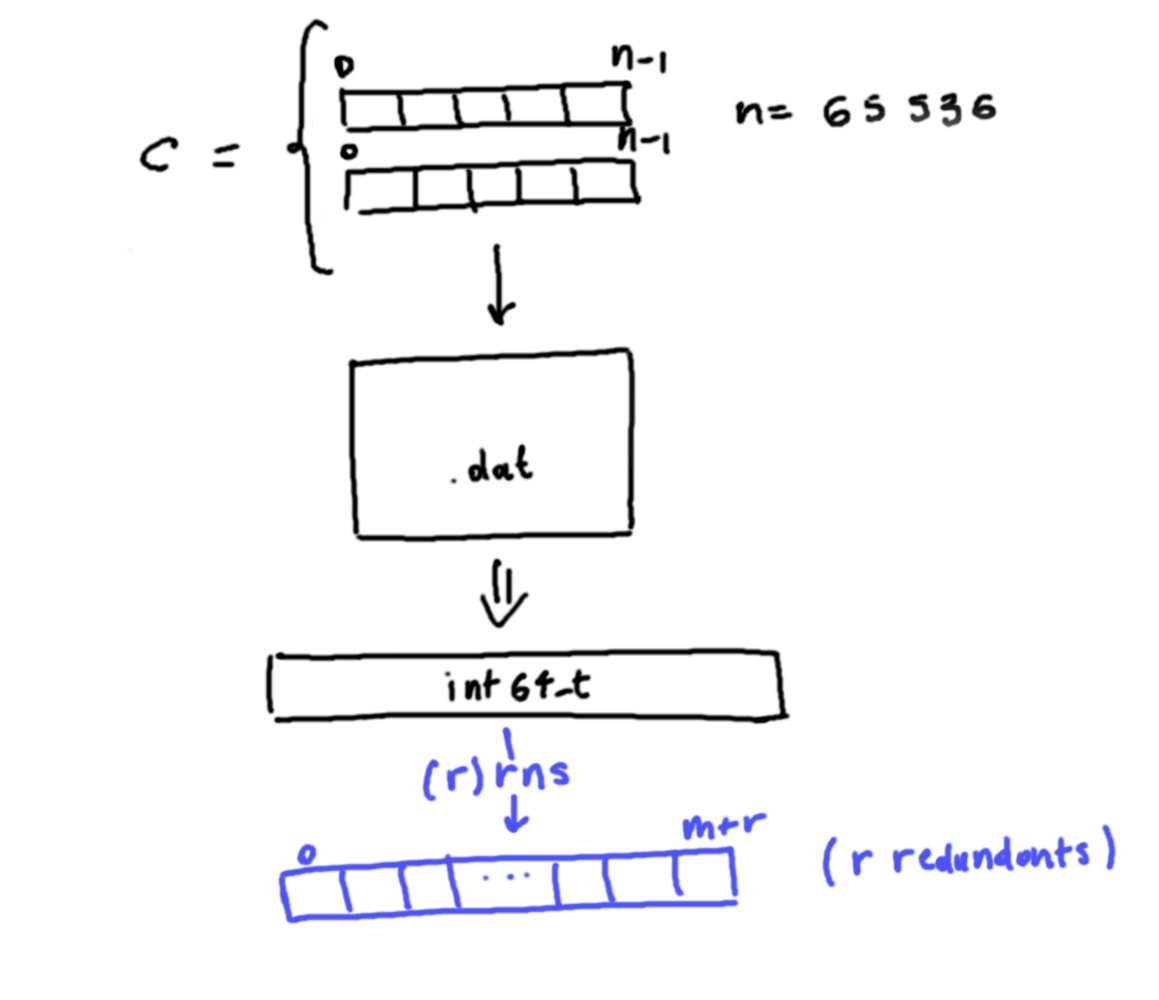 0 n-1
C = n= 65536
0 n-1
.dat
int64_t
(r)rns
0 m+r
(r redundonts)